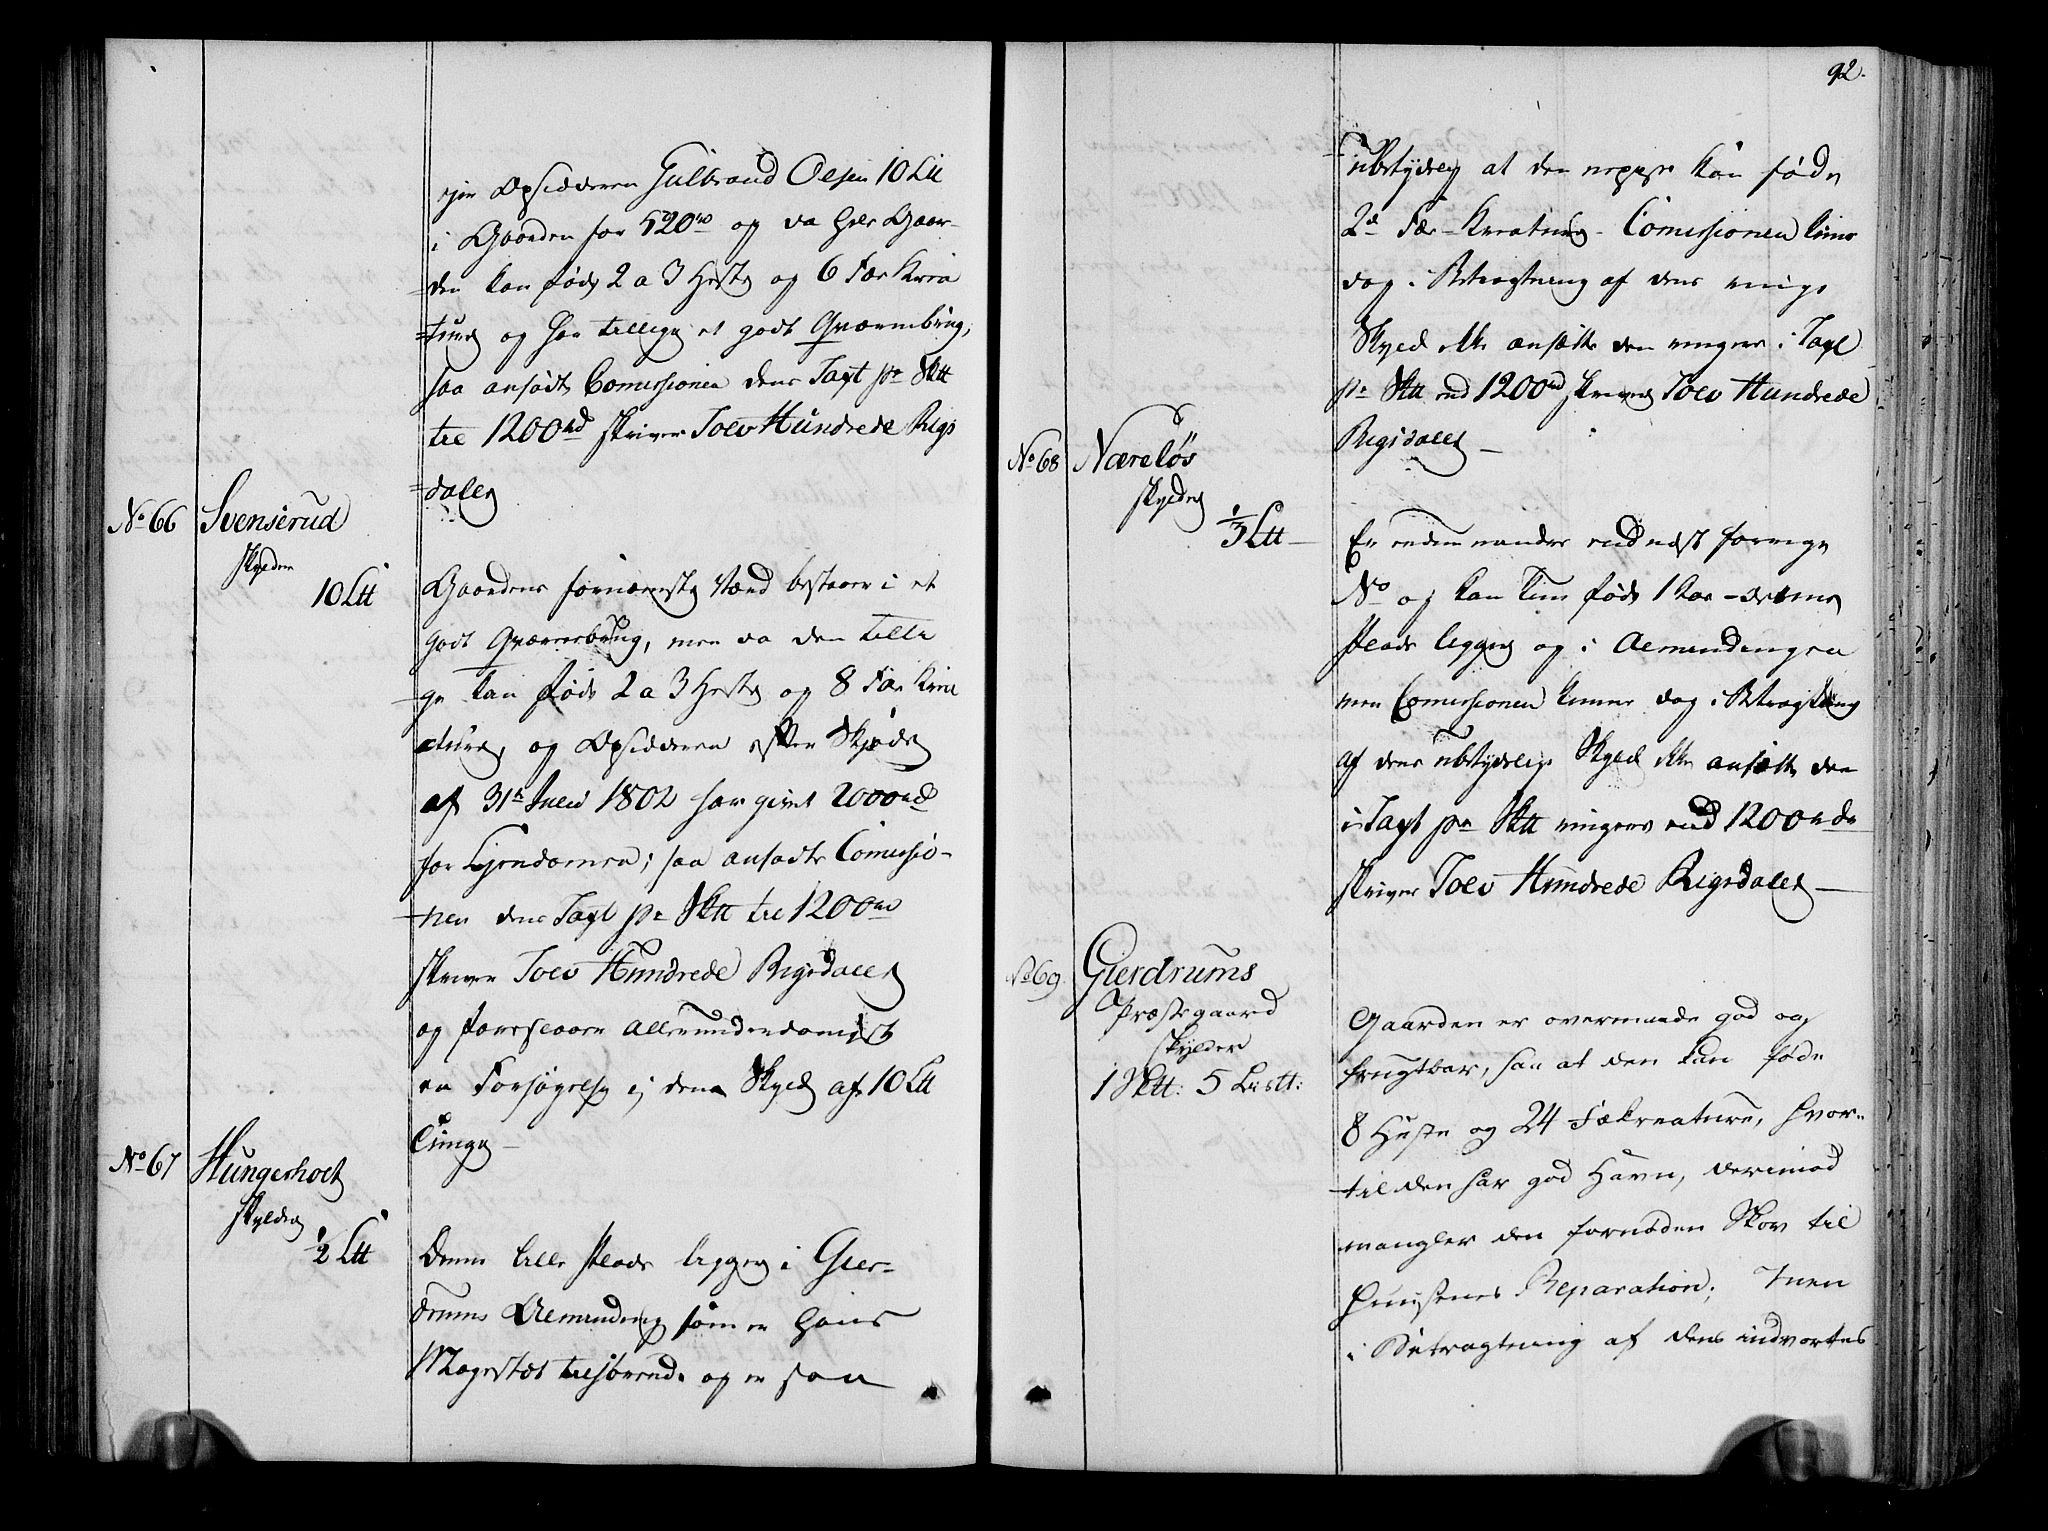 Opsidderen Gulbrand Olsen 10 Ltt
i Gaarden for 520 rd og da hele Gaar-
den kan føde 2 a 3 Heste og 6 Fæe Krea
=ture og har tillige et godt Qværnebrug,
saa ansadte Comissionen dens Taxt pr Sktt
til 1200 rd skriver Tolv Hundrede Rigs
=daler
No 66 Svenserud
skylder
10 Ltt
Gaardens fornæmste Værd bestaaer i et
godt Qværnebrug, men da den tilli
-ge kan føde 2 a 3 Heste og 8 Fæe Krea
ture, og Opsidderen efter Skjøde
af 31te Julii 1802 har givet 2000 rd
for Ejendomen; saa ansadte Comissio-
-nen dens Taxt pr Sktt til 1200 rd
skriver Tolv Hundrede Rigsdaler
og foreslaaer allerunderdanigst
en Forhøyelse i dens Skyld af 10 Ltt
Tunge —
No 67 Hungerholt
skylder
1/2 Ltt
Denne lille Plads ligger i Gier-
drums Almending som er Hans
Majestæt tilhørende og er saa
92.
ubetydelig at den neppe kan føde
2de Fæe-Kreature - Comissionen kunde
dog i Betragtning af dens ringe
Skyld ikke ansætte den ringere i Taxt
pr Sktt end 1200 rd skriver Tolv Hundrede
Rigsdaler —
No 68 Næreløs
skylder
1/3 Ltt —
Er endnu mindre end næst forrige
No og kan kun føde 1 Koe - denne
Plads ligger og i Almendingen
men Comissionen kunde dog i Betragtning
af dens ubetydelige Skyld ikke ansætte den
i Taxt pr Sktt ringere end 1200 rd
skriver Tolv Hundrede Rigsdaler —
No 69. Gierdrums
Præstegaard
skylder
1 Sktt: 5 Listt:
Gaarden er overmaade god og
frugtbar, saa at den kan føde
8 Heste og 24 Fækreature, hvor-
til den har god Havn, derimod
mangler den fornøden Skov til
Huusenes Reparation; Men
i Betragtning af dens indvortes